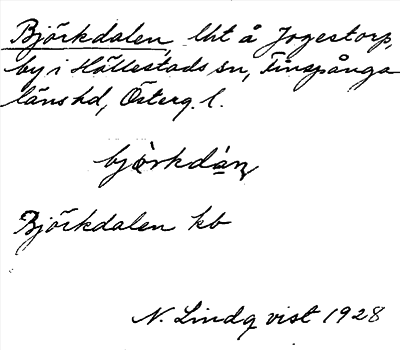 Björkdalen, lht å Jogestorp,
by i Hällestads sn, Finspånga
läns hd, Österg. l.
björkdán
Björkdalen kb
N. Lindqvist 1928